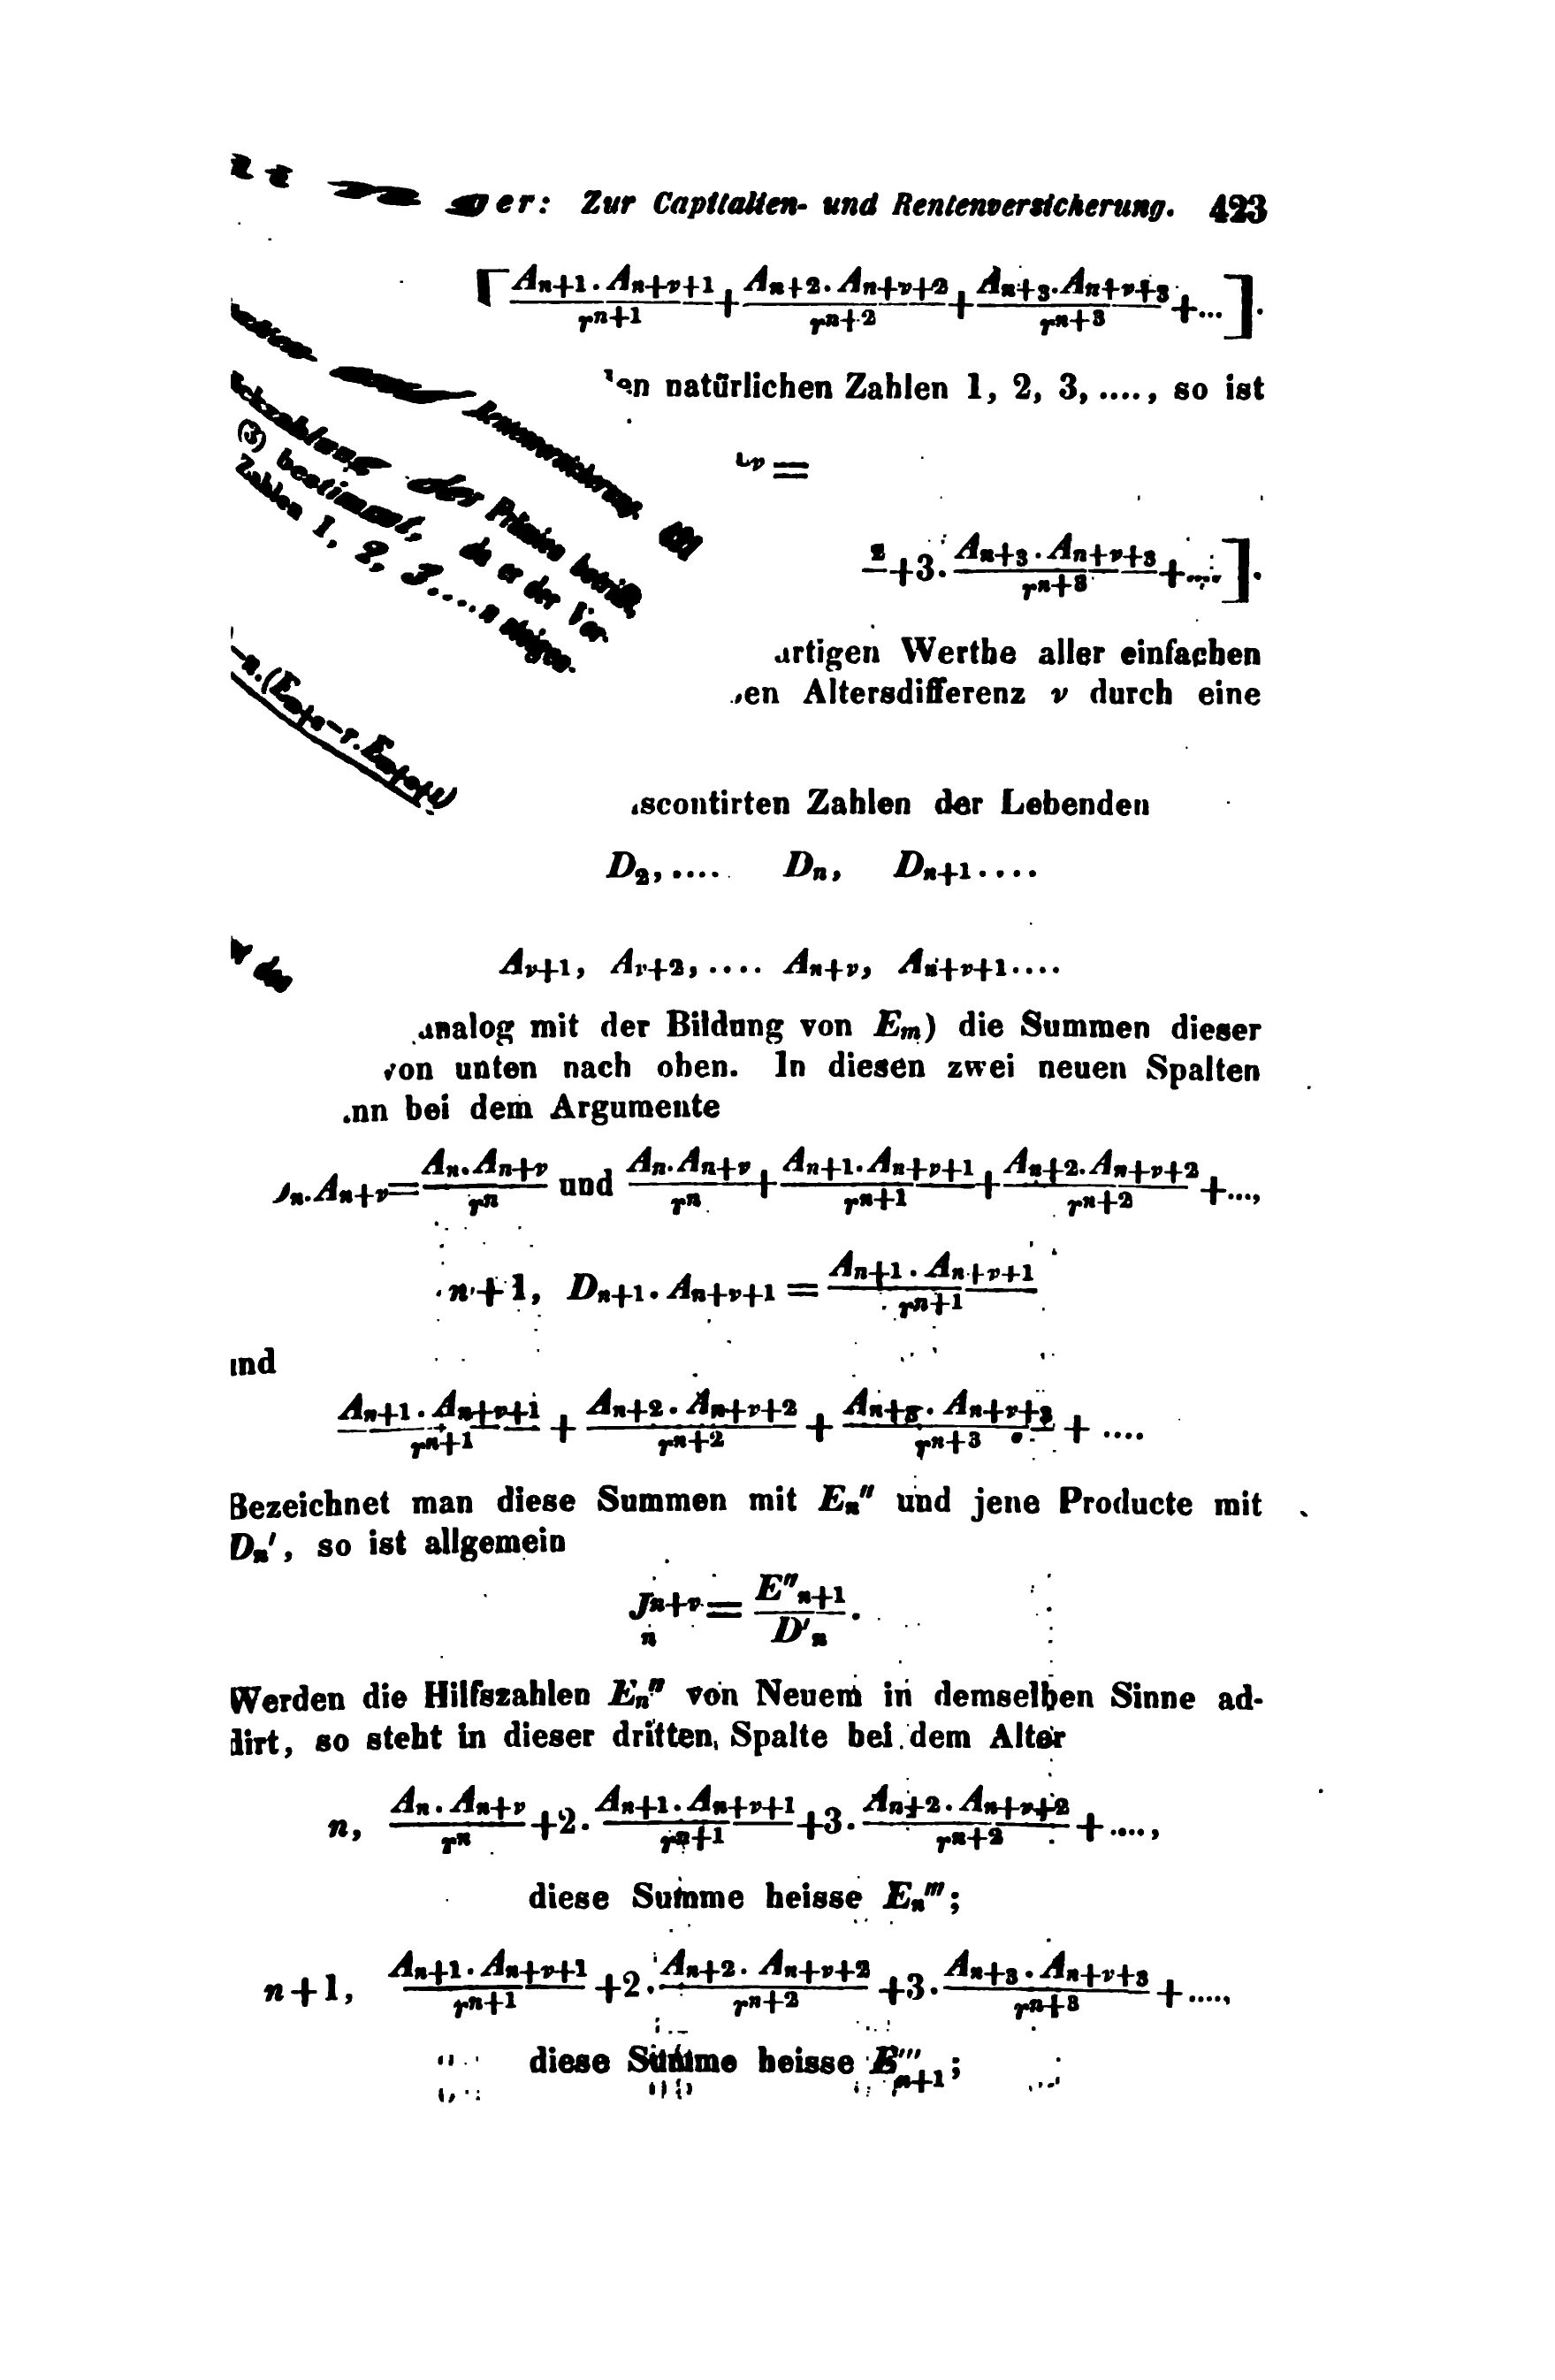 er: Zur Capitalien- und Rentenversicherung. 423
[ A_{n+1} . A_{n+ν+1} / r^{n+1} + A_{n+2} . A_{n+ν+2} / r^{n+2} + A_{n+3} . A_{n+ν+3} / r^{n+3} + ... ].
natürlichen Zahlen 1, 2, 3, ...., so ist
Rentenversicherung.
der Prämien betrifft,
(3) bestimmt, da er der
Zahlen 1, 2, 3.... n steigen.
ν =
+3. A_{n+3} . A_{n+ν+3} / r^{n+3} + .... ].
artigen Werthe aller einfachen
en Altersdifferenz ν durch eine
n.(E_{m+n} − r.
scontirten Zahlen der Lebenden
D_2, .... D_n, D_{n+1} ....
A_{ν+1}, A_{ν+2}, .... A_{n+ν}, A_{n+ν+1} ....
analog mit der Bildung von E_m) die Summen dieser
von unten nach oben. In diesen zwei neuen Spalten
nn bei dem Argumente
_n . A_{n+ν} = A_n . A_{n+ν} / r^n und A_n . A_{n+ν} / r^n + A_{n+1} . A_{n+ν+1} / r^{n+1} + A_{n+2} . A_{n+ν+2} / r^{n+2} + ...,
n+1, D_{n+1} . A_{n+ν+1} = A_{n+1} . A_{n+ν+1} / r^{n+1}
und
A_{n+1} . A_{n+ν+1} / r^{n+1} + A_{n+2} . A_{n+ν+2} / r^{n+2} + A_{n+3} . A_{n+ν+3} / r^{n+3} + ....
Bezeichnet man diese Summen mit E_n'' und jene Producte mit
D_n', so ist allgemein
J_n^{n+ν} = E''_{n+1} / D'_n .
Werden die Hilfszahlen E_n'' von Neuem in demselben Sinne ad-
dirt, so steht in dieser dritten Spalte bei dem Alter
n, A_n . A_{n+ν} / r^n + 2 . A_{n+1} . A_{n+ν+1} / r^{n+1} + 3 . A_{n+2} . A_{n+ν+2} / r^{n+2} + ....,
diese Summe heisse E_n''';
n+1, A_{n+1} . A_{n+ν+1} / r^{n+1} + 2 . A_{n+2} . A_{n+ν+2} / r^{n+2} + 3 . A_{n+3} . A_{n+ν+3} / r^{n+3} + ....,
diese Summe heisse E'''_{n+1};